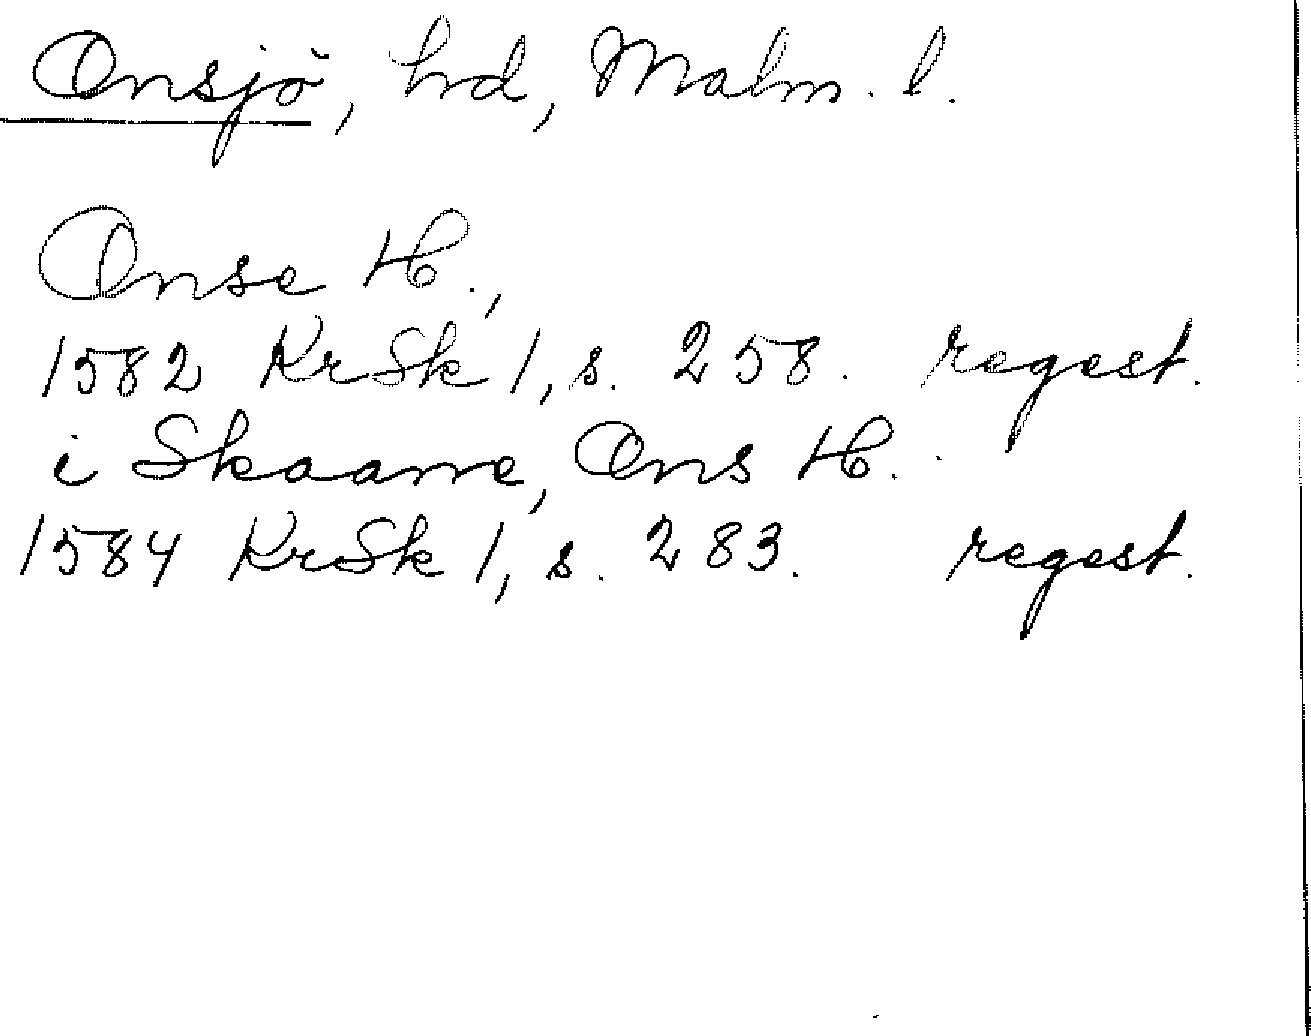 Onsjö, hrd, Malm. l.
Onse H.,
1582 KrSk 1, s. 258. regest.
i Skaane, Ons H.
1584 KrSk 1, s. 283. regest.